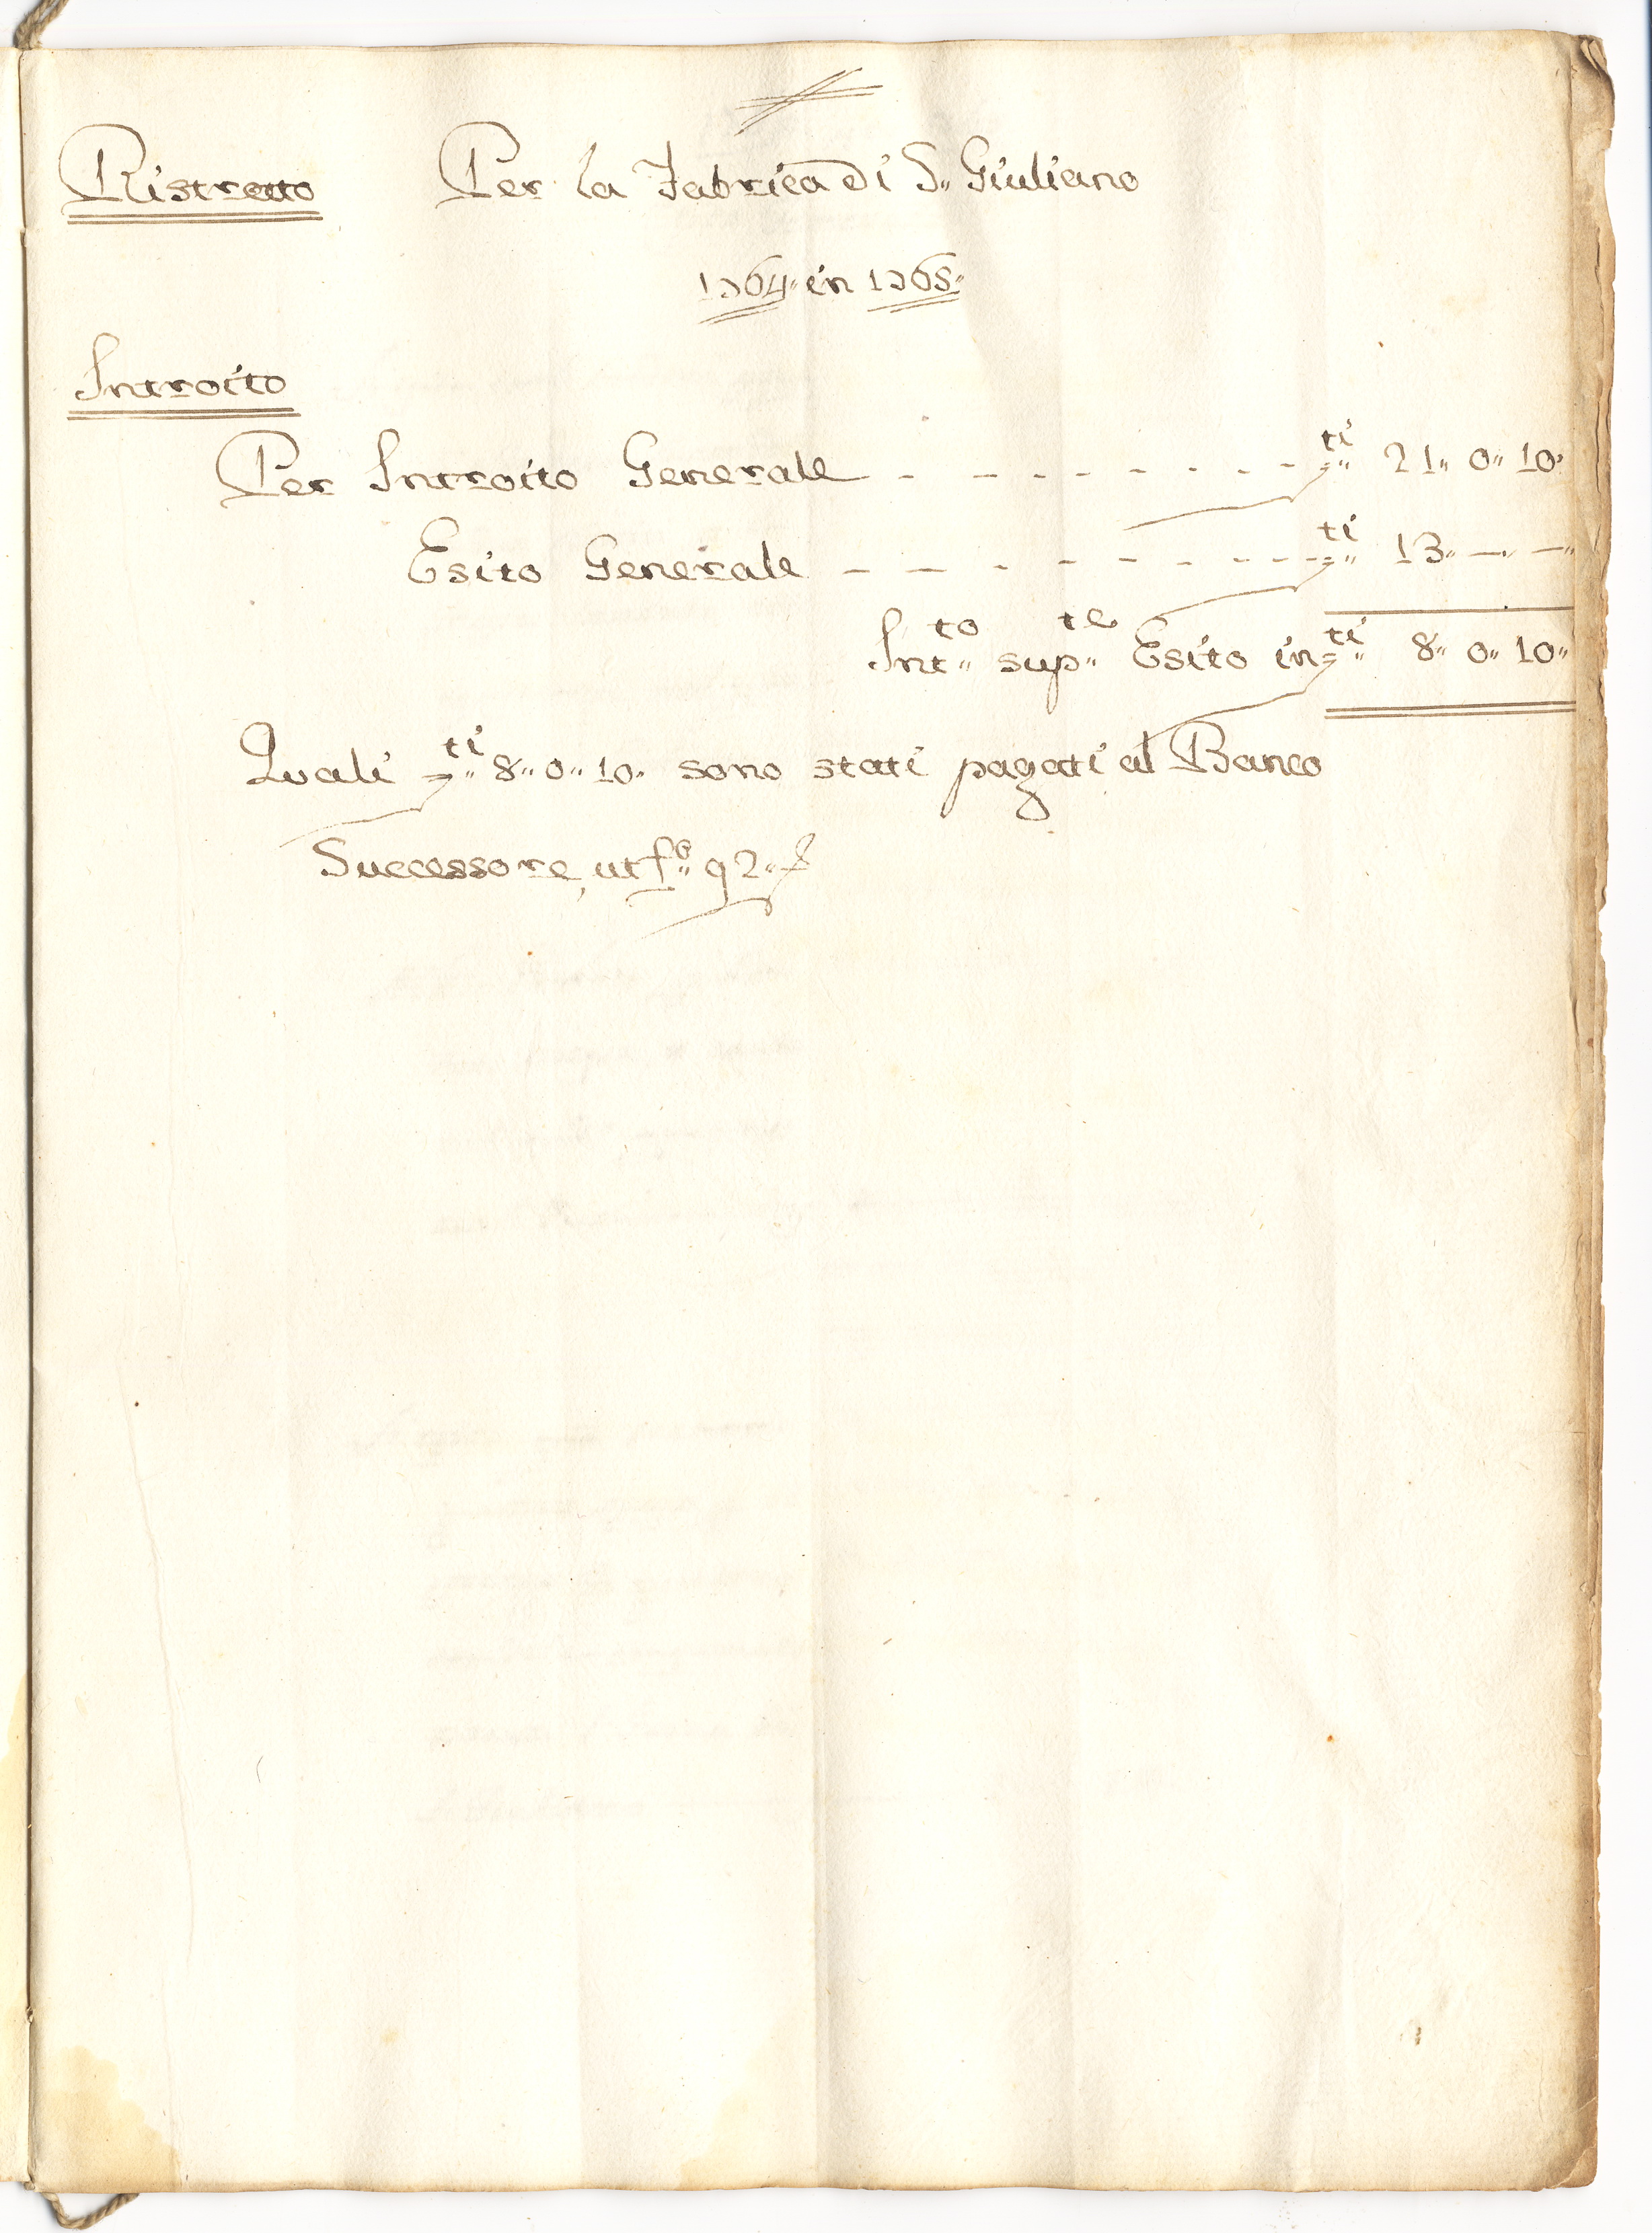 Ristretto Per la Fabrica di S. Giuliano
1764 in 1765
Introito
Per Introito Generale - - - - - - - - ti 21.. 0.. 10.
Esito Generale - - - - - - - - - ti 13.. — . —
Int.to sup.te Esito in ti 8.. 0.. 10..
Quali ti 8.. 0.. 10. sono stati pagati al Banco
Successore, ut f.o 92..